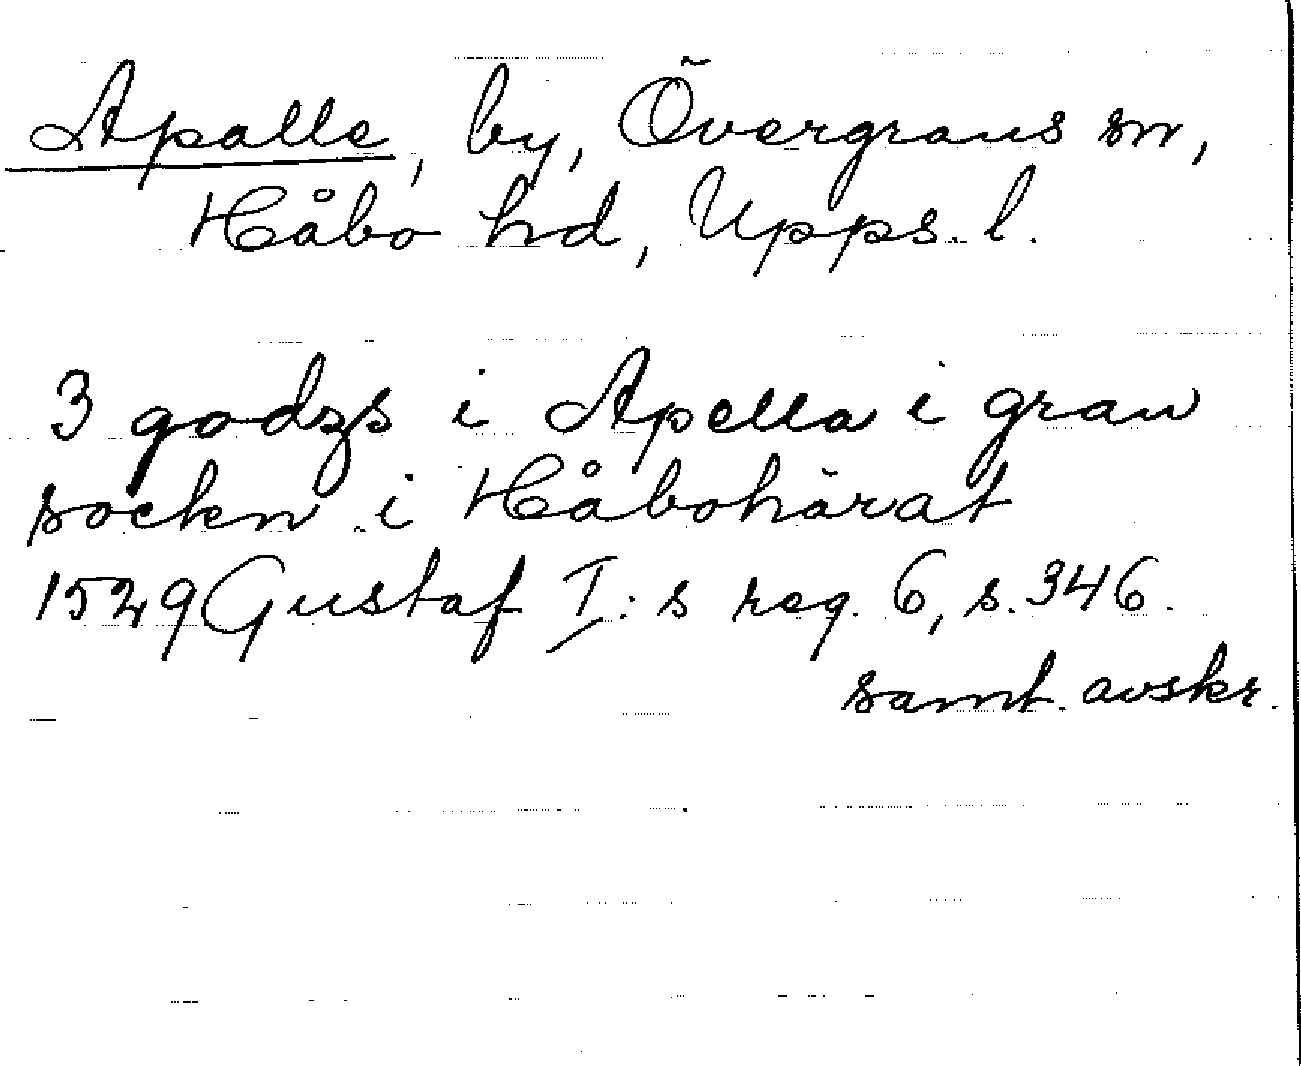 Apalle, by, Övergrans sn,
Håbo hd, Upps. l.
3 godzs i Apella i gran
sockn i Håbohärat
1529 Gustaf I:s reg. 6, s. 346.
samt. avskr.